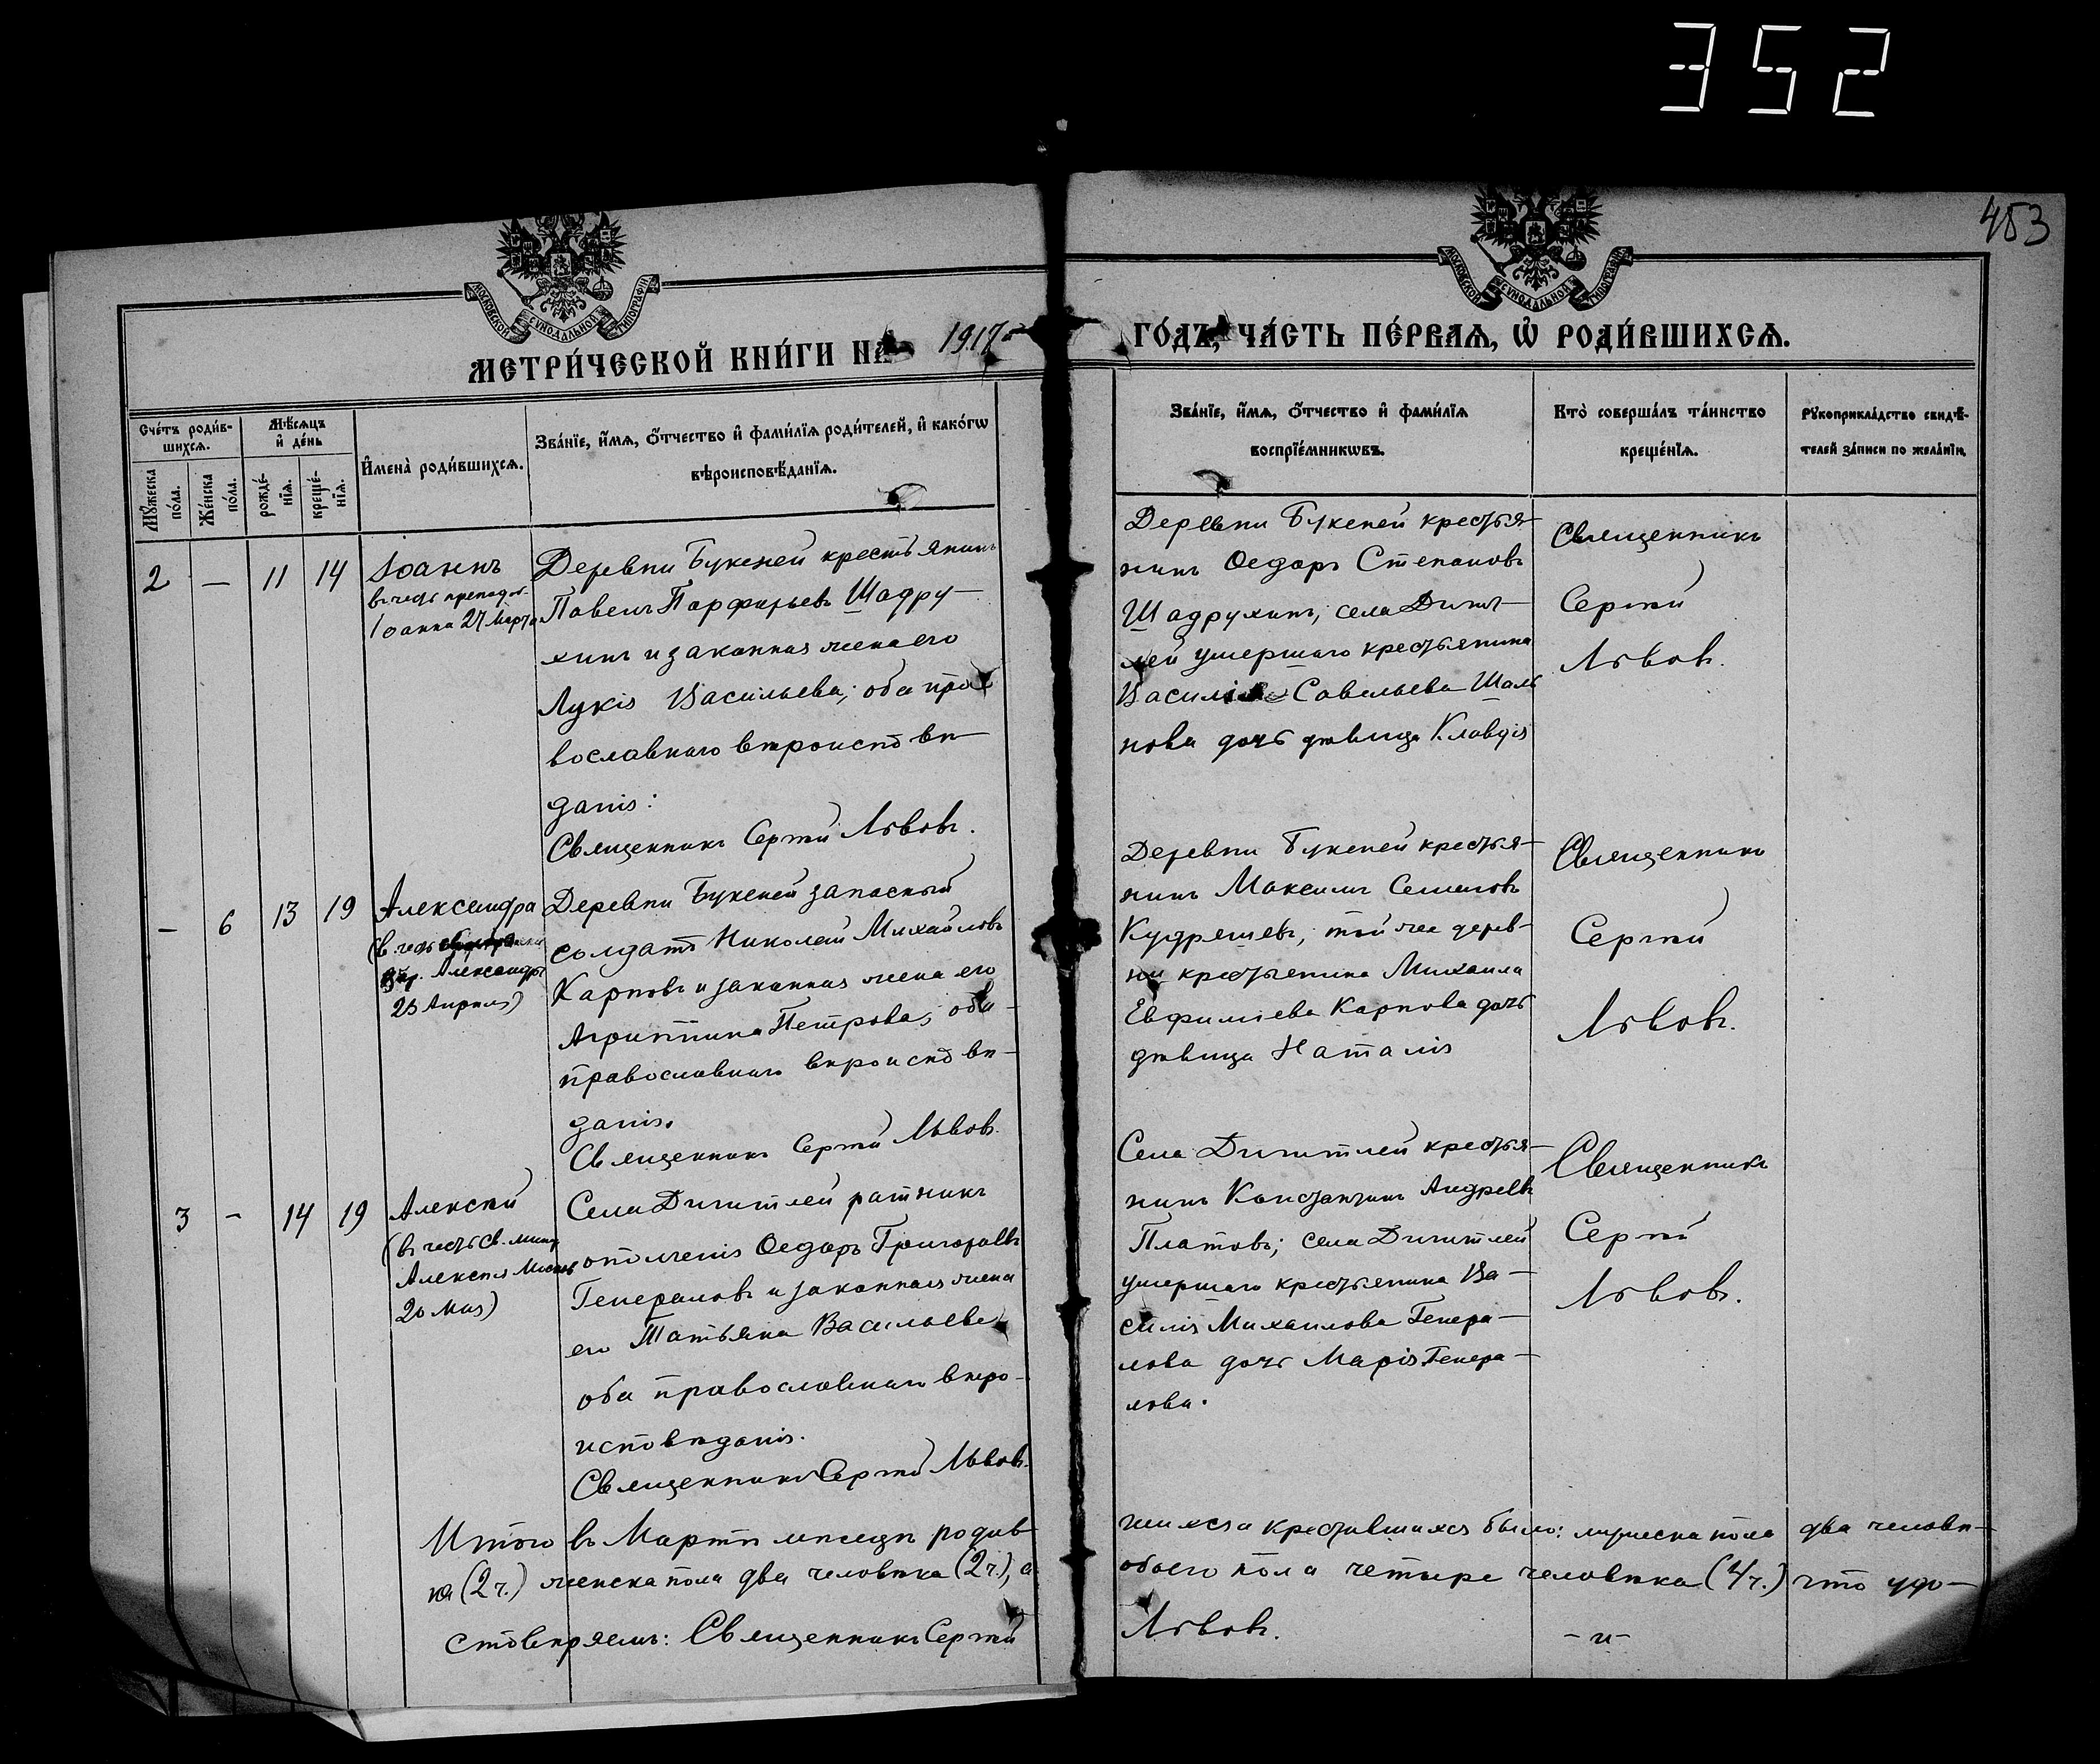 352
453
МОСКОВСКОЙ СѴНОДАЛЬНОЙ ТИПОГРАФІИ
МОСКОВСКОЙ СѴНОДАЛЬНОЙ ТИПОГРАФІИ
МЕТРИ́ЧЕСКОЙ КНИ́ГИ НА 1917 ГО́ДЪ, ЧА́СТЬ ПЕ́РВАѦ, Ѡ҆ РОДИ́ВШИХСѦ.
Сче́тъ роди́в-
шихсѧ.
Мꙋ́жеска по́ла.
Же́нска по́ла.
Мѣ́сѧцъ и҆ де́нь
рожде́-
нїѧ.
креще́-
нїѧ.
И҆мена̀ роди́вшихсѧ.
Зва́нїе, и҆́мѧ, ѻ҆́тчество и҆ фами́лїѧ роди́телей, и҆ како́гѡ
вѣроисповѣ́данїѧ.
Зва́нїе, и҆́мѧ, ѻ҆́тчество и҆ фами́лїѧ
воспрїе́мникѡвъ.
Кто̀ соверша́лъ та́инство
креще́нїѧ.
Рꙋкоприкла́дство свидѣ́-
телей за́писи по жела́нїю.
2 — 11 14
Іоаннъ
въ честь преподоб.
Іоанна 27 Марта
Деревни Букеней крестьянинъ
Павелъ Парфирьевъ Шадру-
хинъ и законная жена его
Лукія Васильева; оба пра
вославнаго вѣроисповѣ-
данія:
Священникъ Сергій Львовъ.
Деревни Букеней крестья-
нинъ Ѳедоръ Степановъ
Шадрухинъ; села
лей умершаго крестьянина
Василія Савельева
нова дочь дѣвица Клавдія
Священникъ
Сергій
Львовъ.
— 6 13 19
Александра
(въ честь
Цар. Александры
23 Апрѣля)
Деревни Букеней запасный
солдатъ Николай Михайловъ
Карповъ и законная жена его
Агриппина Петрова; оба-
православнаго вѣроисповѣ-
данія.
Священникъ Сергій Львовъ.
Деревни Букеней крестья-
нинъ Максимъ Семеновъ
Кудряшевъ, той же дерев-
ни крестьянина Михаила
Евфиміева Карпова дочь
дѣвица Наталія
Священникъ
Сергій
Львовъ.
3 - 14 19
Алексѣй
(въ честь св. митр
Алексѣя Москов
20 Мая)
Села ратникъ
ополченія Ѳедоръ Григорьевъ
Генераловъ и законная жена
его Татьяна Васильева
оба православнаго вѣро-
исповѣданія.
Священникъ Сергій Львовъ.
Села крестья-
нинъ Константинъ Андреевъ
Платовъ; села
умершаго крестьянина Ва-
силія Михаилова Генера-
лова дочь Марія Генера-
лова.
Священникъ
Сергій
Львовъ.
Итого въ Мартѣ мѣсяцѣ родив-
шихся крестившихся было: мужеска пола два человѣ-
ка (2 ч.) женска пола два человѣка (2 ч.), а
обоего пола четыре человѣка (4 ч.) что удо-
стовѣряемъ: Священникъ Сергій
Львовъ. - „ -